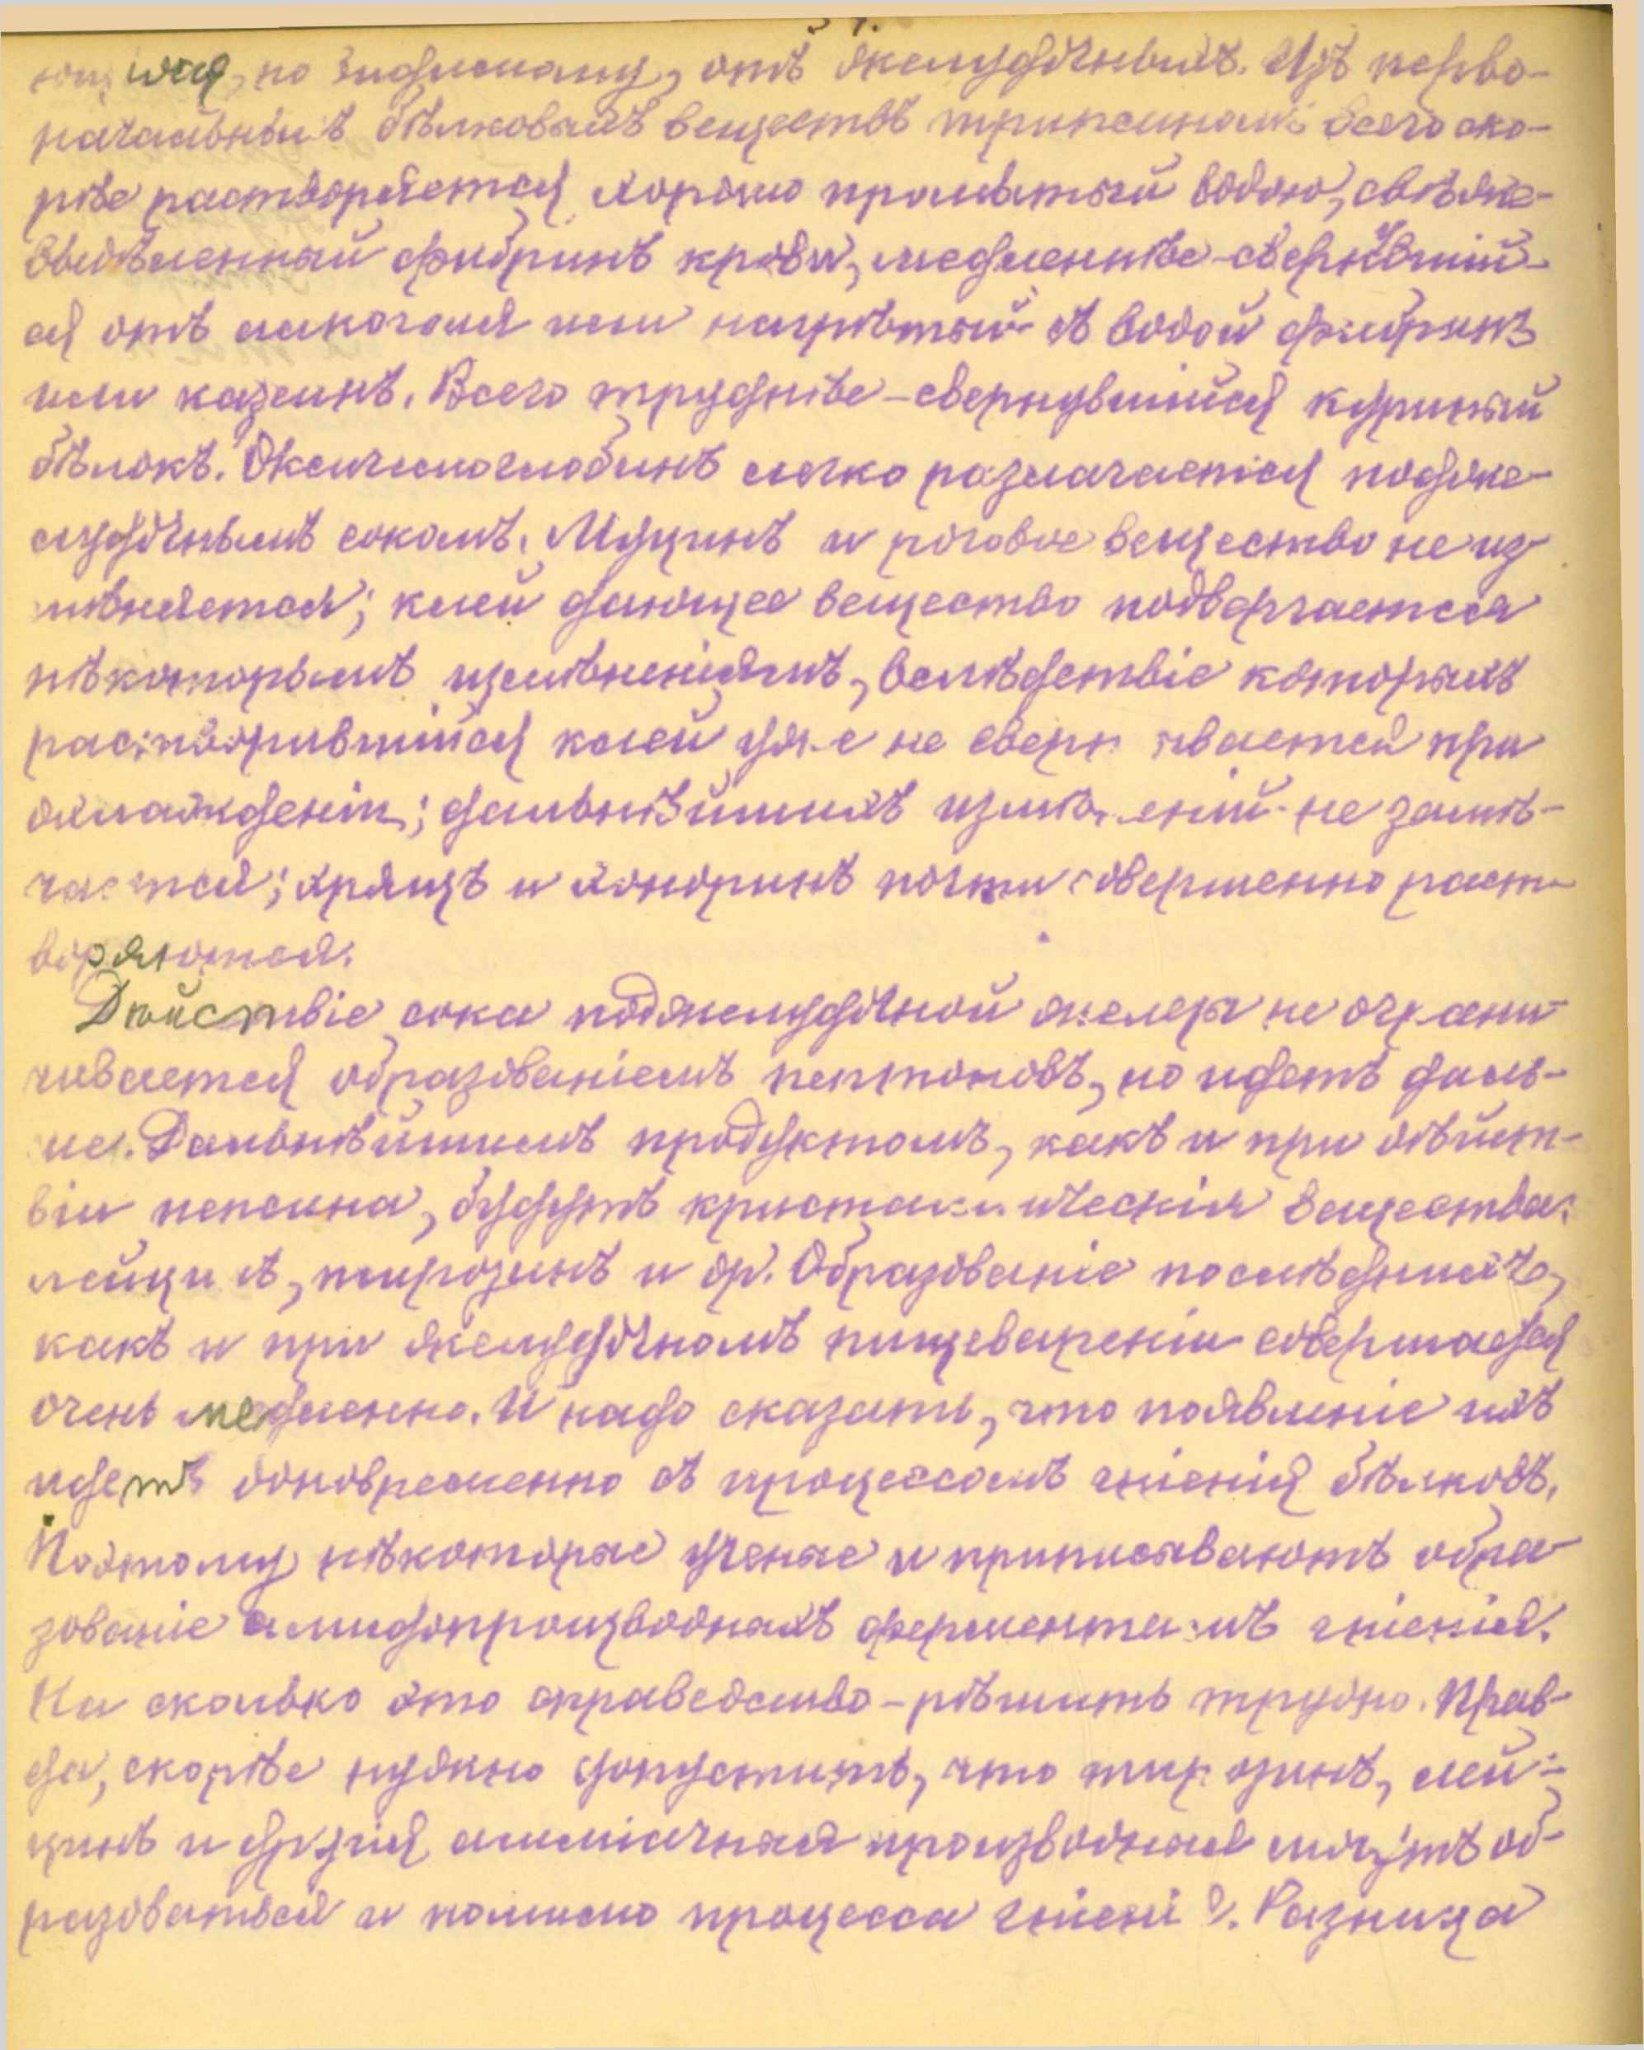 ющіося, по видимому, отъ желудочныхъ. Изъ перво-
начальныхъ бѣлковыхъ веществъ трипсиномъ всего ско-
рѣе растворяется хорошо промытый водою, свѣже-
выдѣленный фибринъ крови, медленнѣе - свернувшій-
ся отъ алкоголя или нагрѣтый съ водой фибринъ
или казеинъ. Всего труднѣе - свернувшійся куриный
бѣлокъ. Оксигемоглобинъ легко разлагается поджe-
лудочнымъ сокомъ. Муцинъ и роговое вещество не из-
мѣняется; клей дающее вещество подвергается
нѣкоторымъ измѣненіямъ, вслѣдствіе которыхъ
растворившійся клей уже не свертывается при
охлажденіи; дальнѣйшихъ измѣненій не замѣ-
чается; хрящъ и хондринъ почти совершенно раст-
воряются.
Дѣйствіе сока поджелудочной железы не ограни-
чивается образованіемъ пептоновъ, но идетъ даль-
ше. Дальнѣйшимъ продуктомъ, какъ и при дѣйст-
віи пепсина, будутъ кристаллическія вещества:
лейцинъ, тирозинъ и др. Образованіе послѣднихъ,
какъ и при желудочномъ пищевареніи совершается
очень медленно. И надо сказать, что появленіе ихъ
идетъ одновременно съ процессомъ гніенія бѣлковъ.
Поэтому нѣкоторые ученые и приписываютъ обра-
зованіе амидопроизводныхъ ферментамъ гніенія.
На сколько это справедливо - рѣшить трудно. Прав-
да, скорѣе нужно допустить, что тирозинъ, лей-
цинъ и другія амміачныя производныя могутъ об-
разоваться и помимо процесса гніенія. Разница